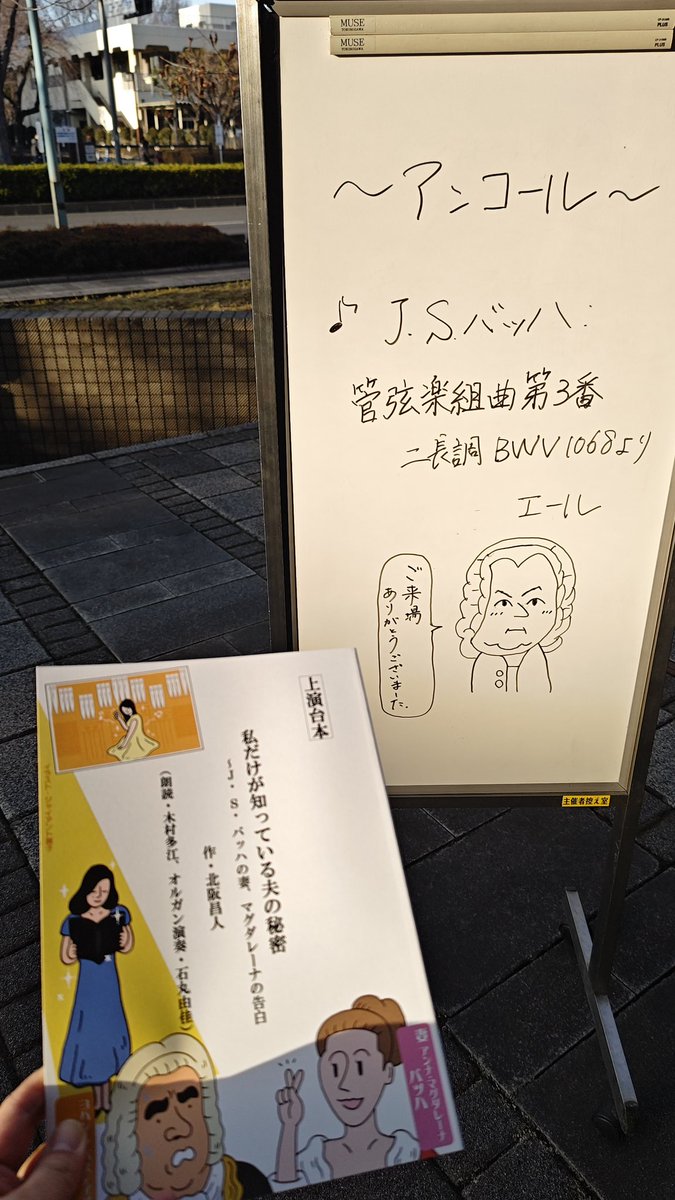 MUSE
TOKOROZAWA
PLUS
MUSE
TOKOROZAWA
PLUS
～アンコール～
♪ J.S.バッハ:
管弦楽組曲第3番
ニ長調 BWV1068より
エール
ご来場
ありがとうございました。
主催者控え室
上演台本
私だけが知っている夫の秘密
～J・S・バッハの妻、マグダレーナの告白
作・北阪昌人
(朗読・木村多江、オルガン演奏・石丸由佳)
妻 アンナ・マグダレーナ
バッハ